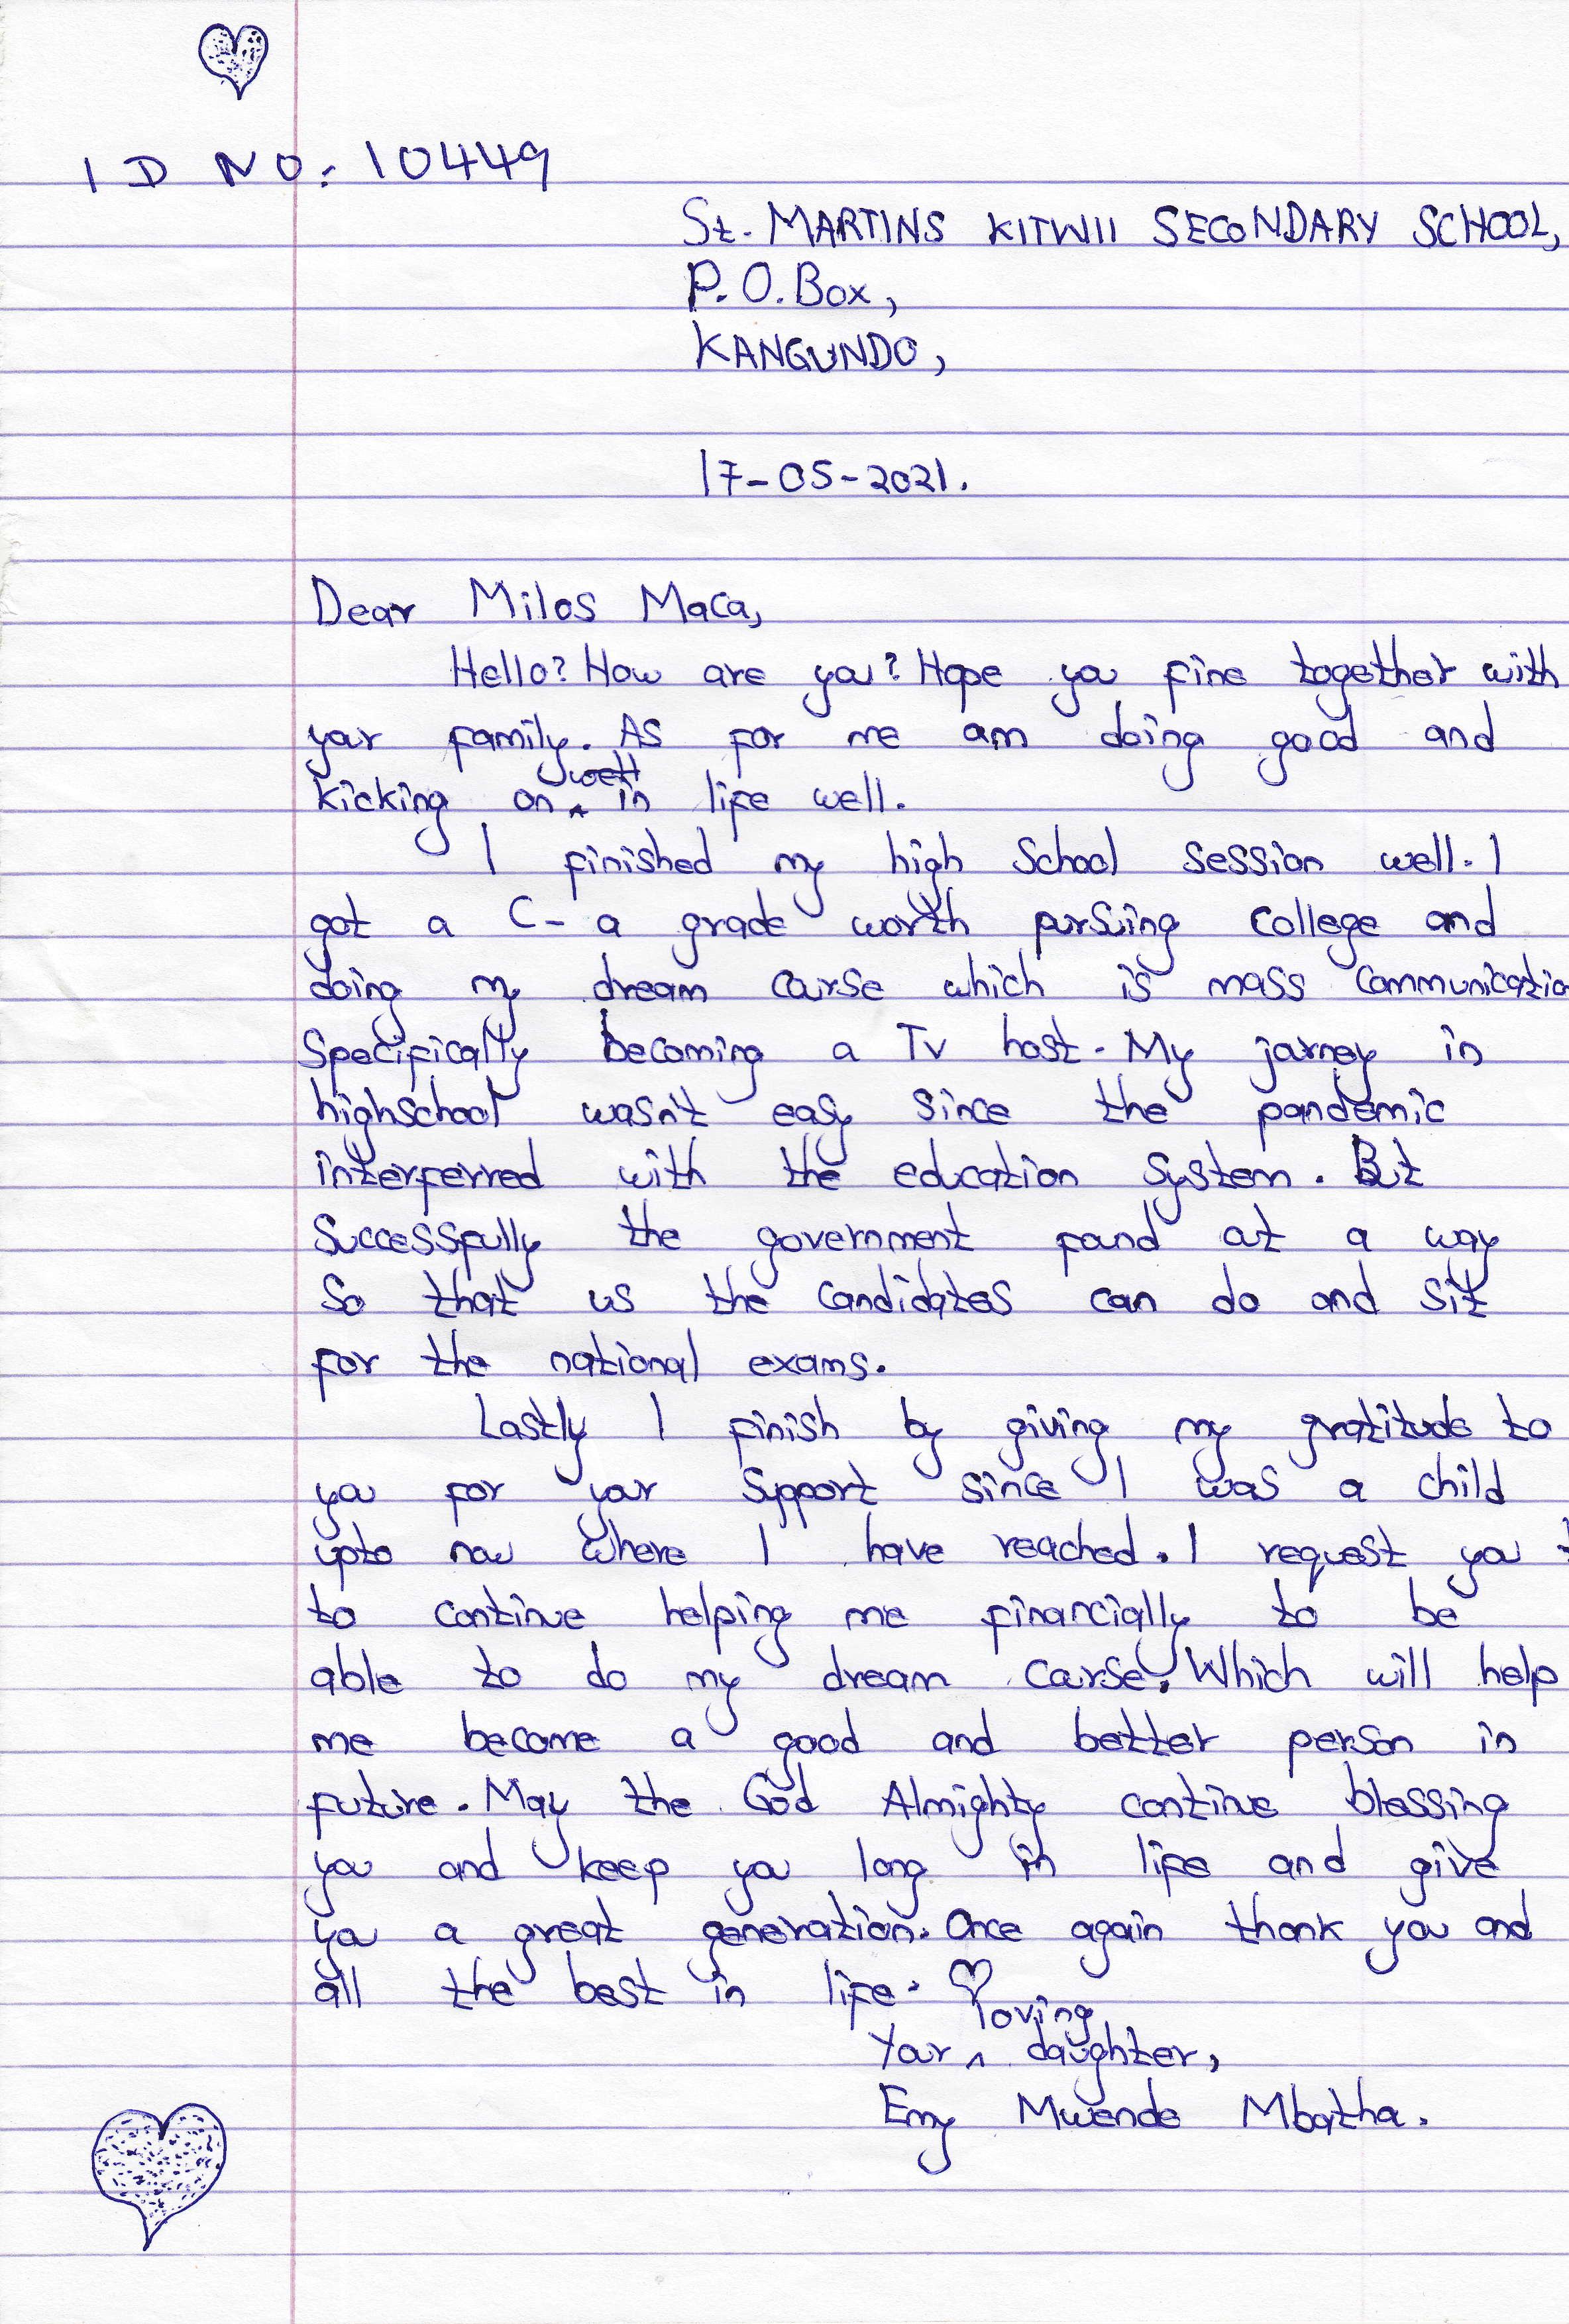 ID NO: 10449
St. MARTINS KITWII SECONDARY SCHOOL,
P.O.Box,
KANGUNDO,
17-05-2021.
Dear Milos Maca,
Hello? How are you? Hope you fine together with
your family. As for me am doing good and
kicking on in life well.
I finished my high school session well. I
got a C- a grade worth pursuing college and
doing my dream course which is mass communicatio
specifically becoming a Tv host. My journey in
highschool wasn't easy since the pandemic
interferred with the education system. But
successfully the government found at a way
so that us the candidates can do and sit
for the national exams.
Lastly I finish by giving my gratitude to
you for your support since I was a child
upto now where I have reached. I request you t
to continue helping me financially to be
able to do my dream course. Which will help
me become a good and better person in
future. May the God Almighty continue blessing
you and keep you long in life and give
you a great generation. Once again thank you and
all the best in life.
Your loving daughter,
Emy Mwende Mbatha.